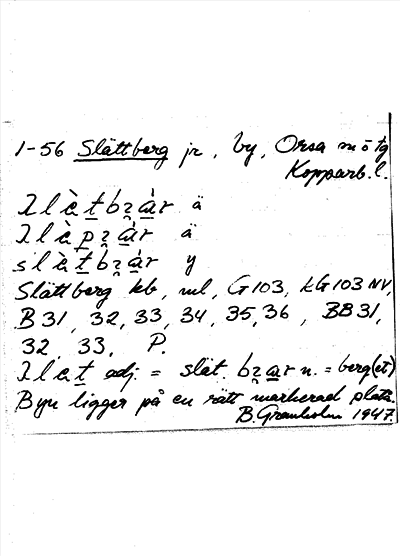 1-56 Slättberg jr, by, Orsa mötg
Kopparb. l.
ä
ä
y
Slättberg kb, ml, G103, kG103 NV,
B31, 32, 33, 34, 35, 36, BB31,
32, 33, P.
adj. = slät. n. = berg(et)
Byn ligger på en rätt markerad platå.
B. Granholm 1947.